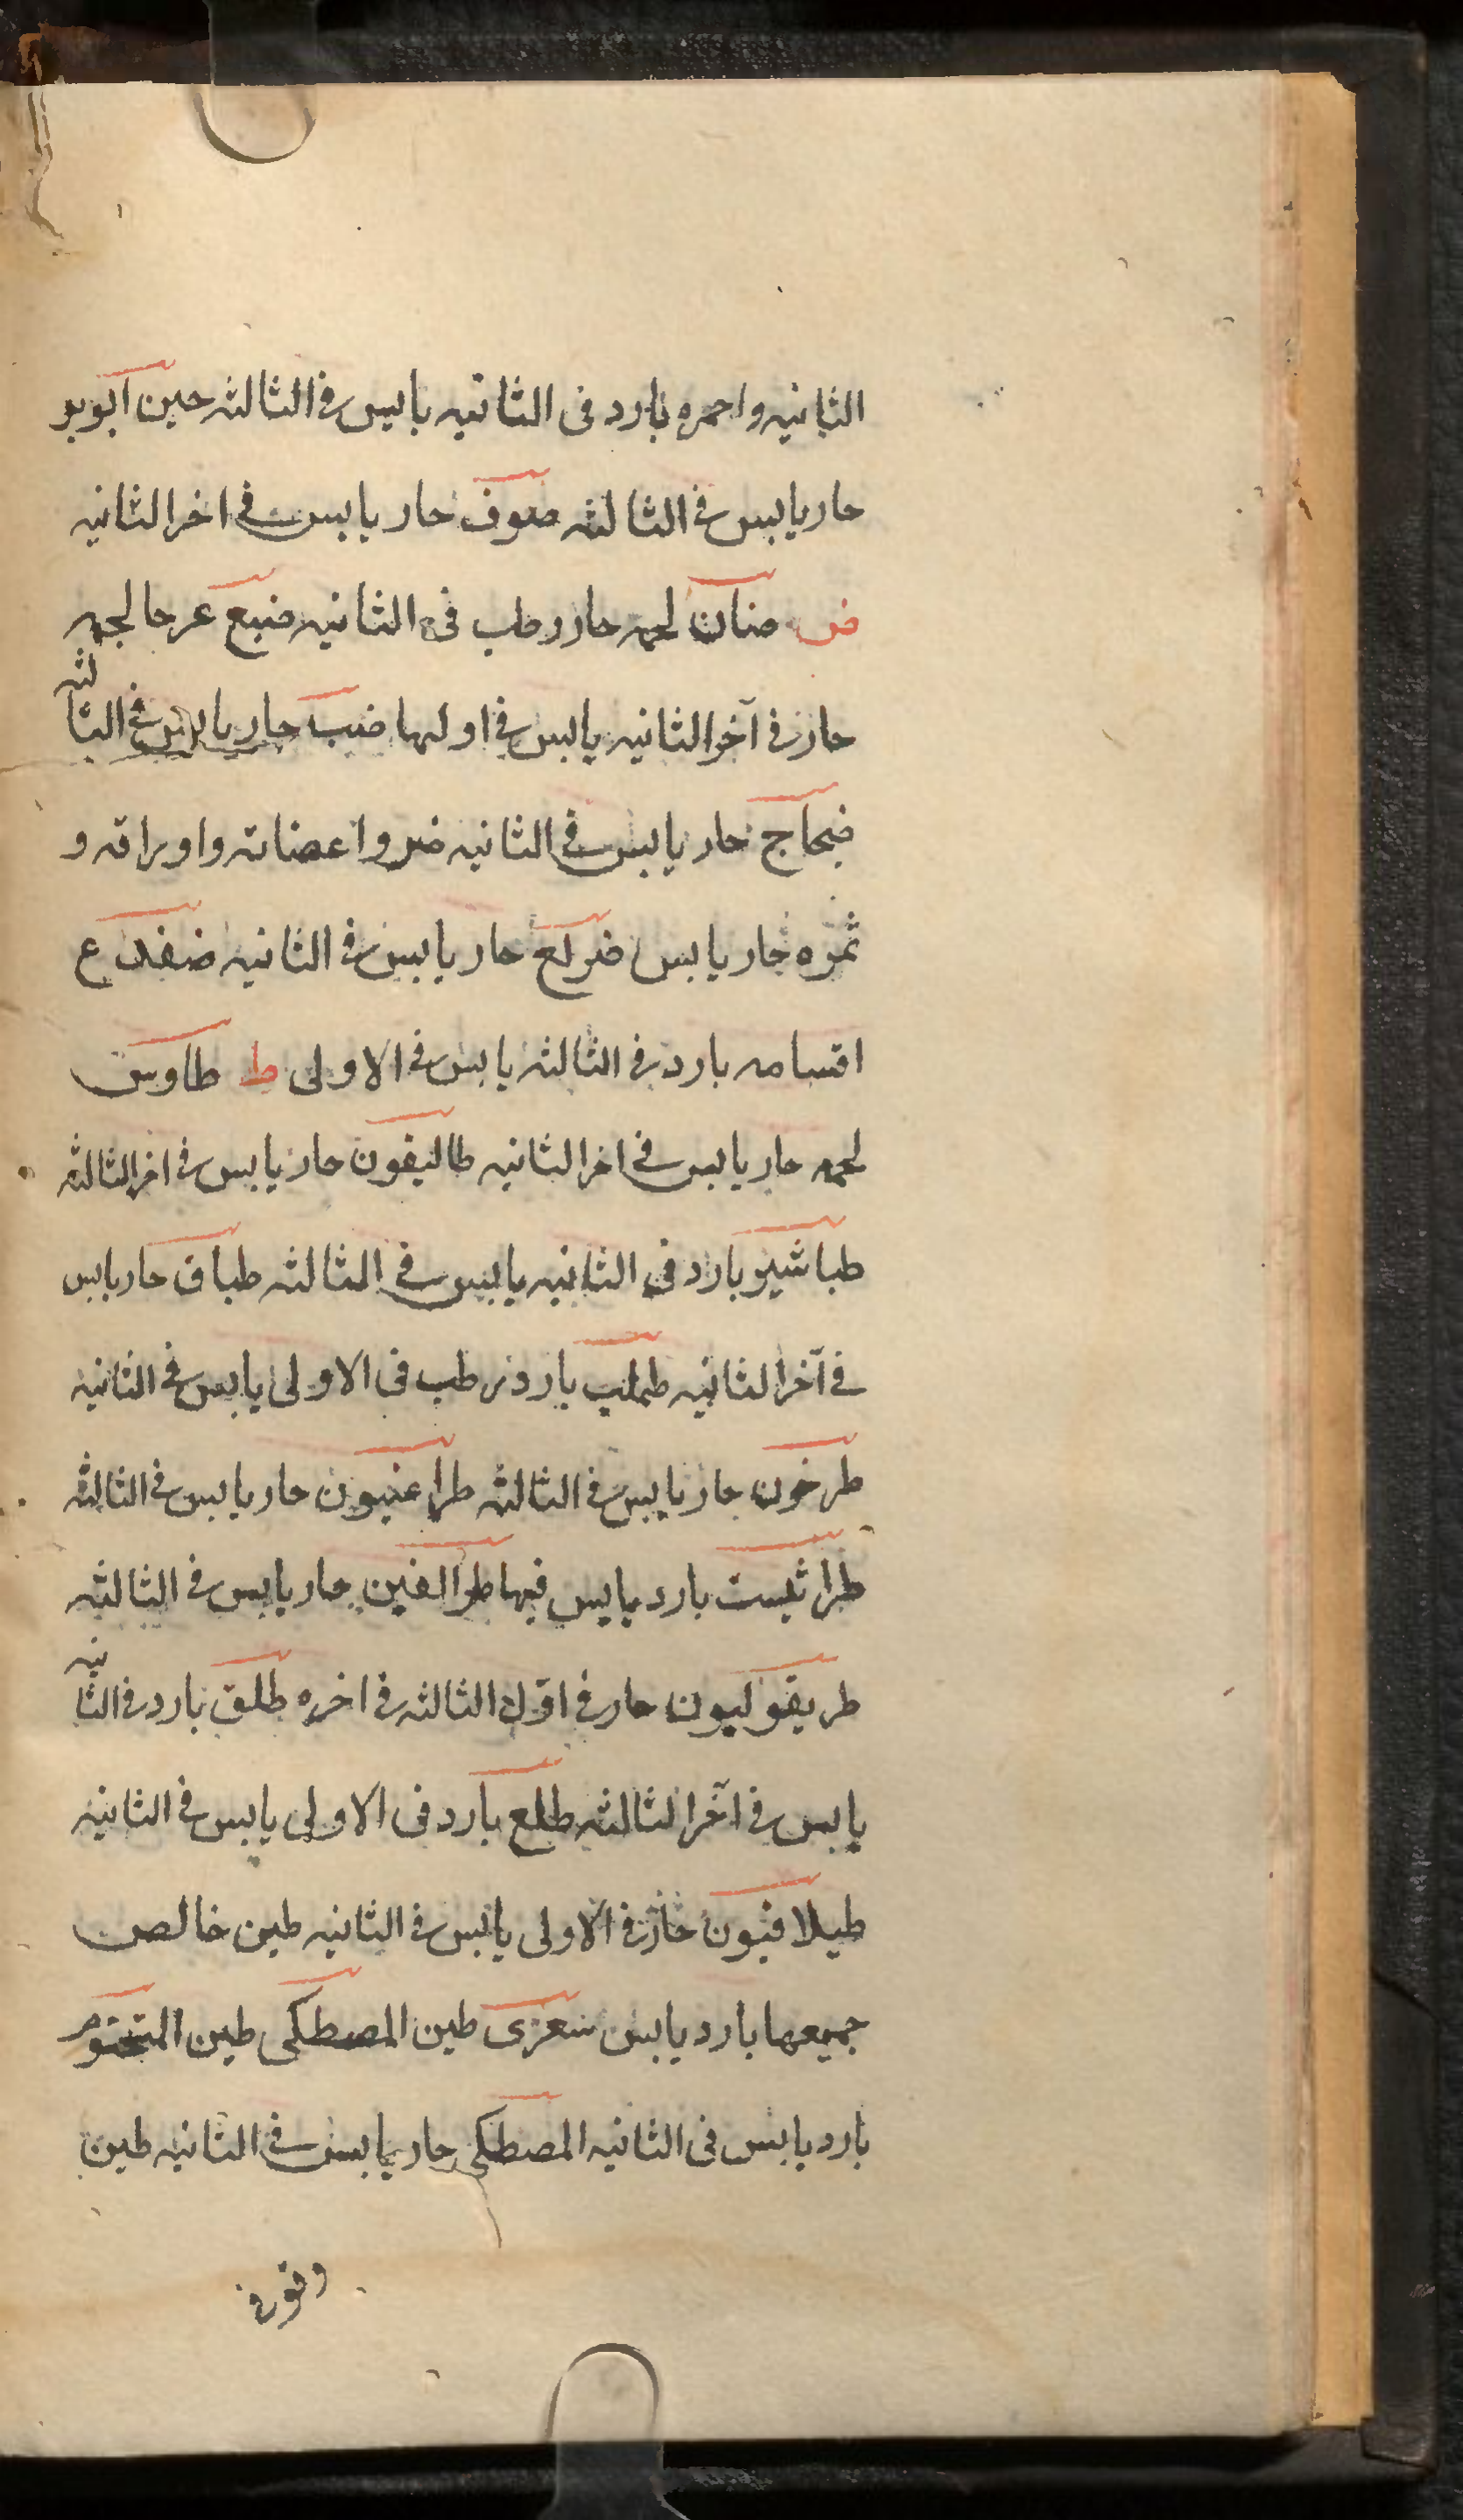 الثانیه واحمره بارد فی الثانیه یابس فی الثالثه حین ابوبو
حار یابس فی الثالثه صوف حار یابس فی اخر الثانیه
ض ضان لحمه حار رطب فی الثانیه ضبع عرجا لحمه
حار فی آخر الثانیه یابس فی اولها ضب حار یابس فی الثالثه
ضجاج حار یابس فی الثانیه ضرو اعضانه واوراقه و
ثمره حار یابس ضریع حار یابس فی الثانیه ضفدع
اقسامه بارد فی الثالثه یابس فی الاولی ط طاوس
لحمه حار یابس فی اخر الثانیه طالیفون حار یابس فی اخر الثالثه
طباشیر بارد فی الثانیه یابس فی الثالثه طباق حار یابس
فی آخر الثانیه طحلب بارد رطب فی الاولی یابس فی الثانیه
طرخون حار یابس فی الثالثه طراغیون حار یابس فی الثالثه
طراثیث بارد یابس فیها طرالفین حار یابس فی الثالثه
طریقولیون حار فی اوّل الثالثه فی اخره طلق بارد فی الثانیه
یابس فی آخر الثالثه طلع بارد فی الاولی یابس فی الثانیه
طیلافیون حار فی الاولی یابس فی الثانیه طین خالص
جمیعها بارد یابس طین المصطکی طین المختوم
بارد یابس فی الثانیه المصطکی حار یابس فی الثانیه طین